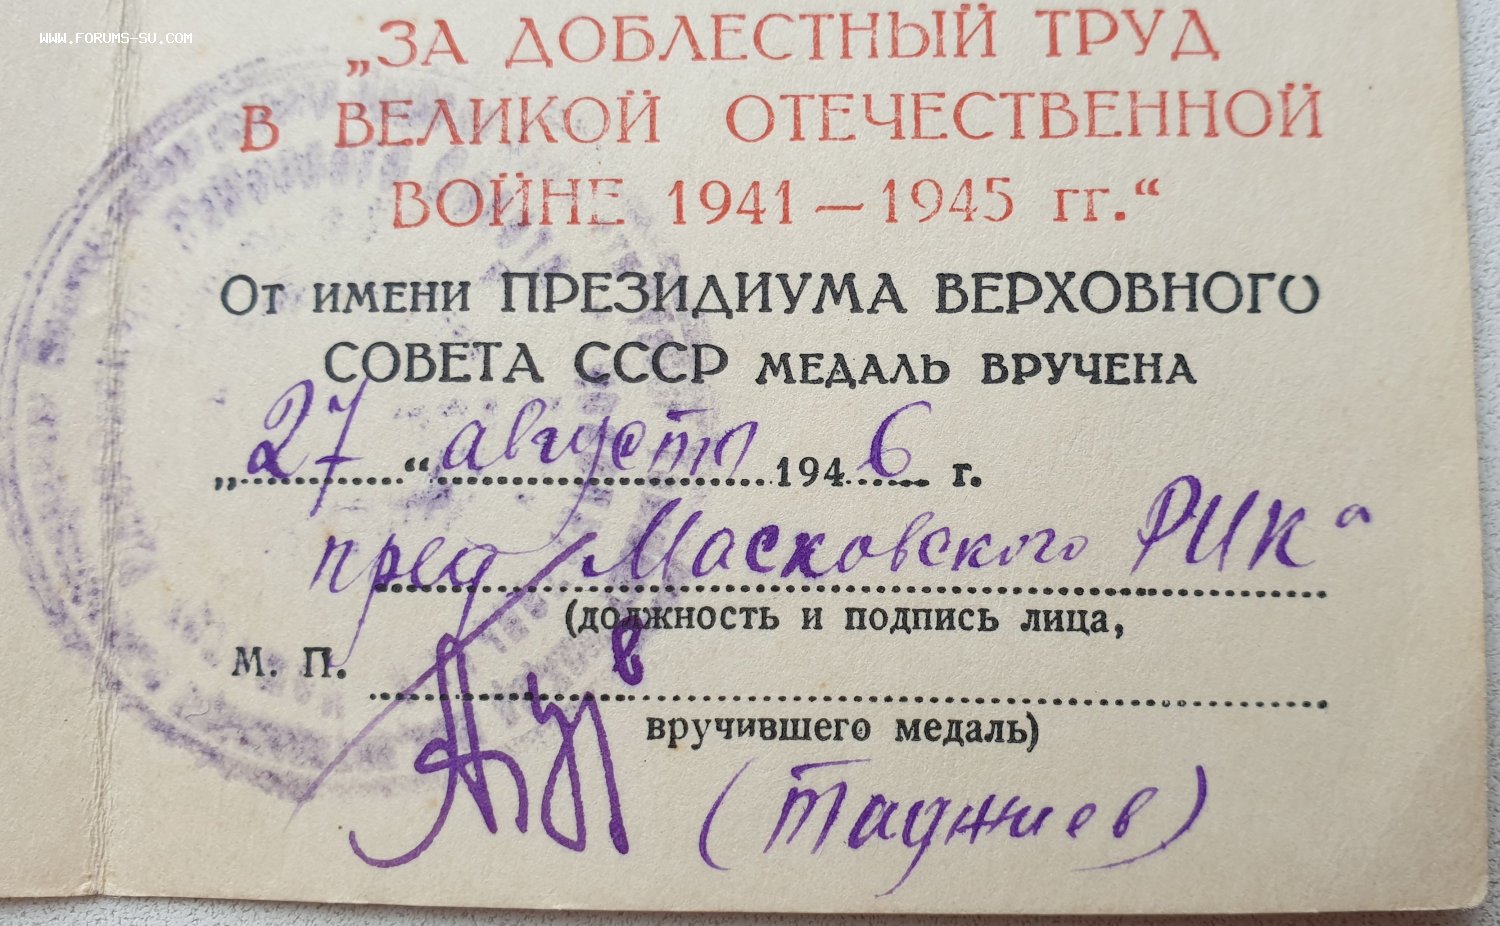 WWW.FORUMS-SU.COM
„ЗА ДОБЛЕСТНЫЙ ТРУД
В ВЕЛИКОЙ ОТЕЧЕСТВЕННОЙ
ВОЙНЕ 1941 — 1945 гг.“
От имени ПРЕЗИДИУМА ВЕРХОВНОГО
СОВЕТА СССР МЕДАЛЬ ВРУЧЕНА
„27“ августа 1946 г.
пред Масковского РИКа
(должность и подпись лица,
М. П.
вручившего медаль)
(Таджиев)